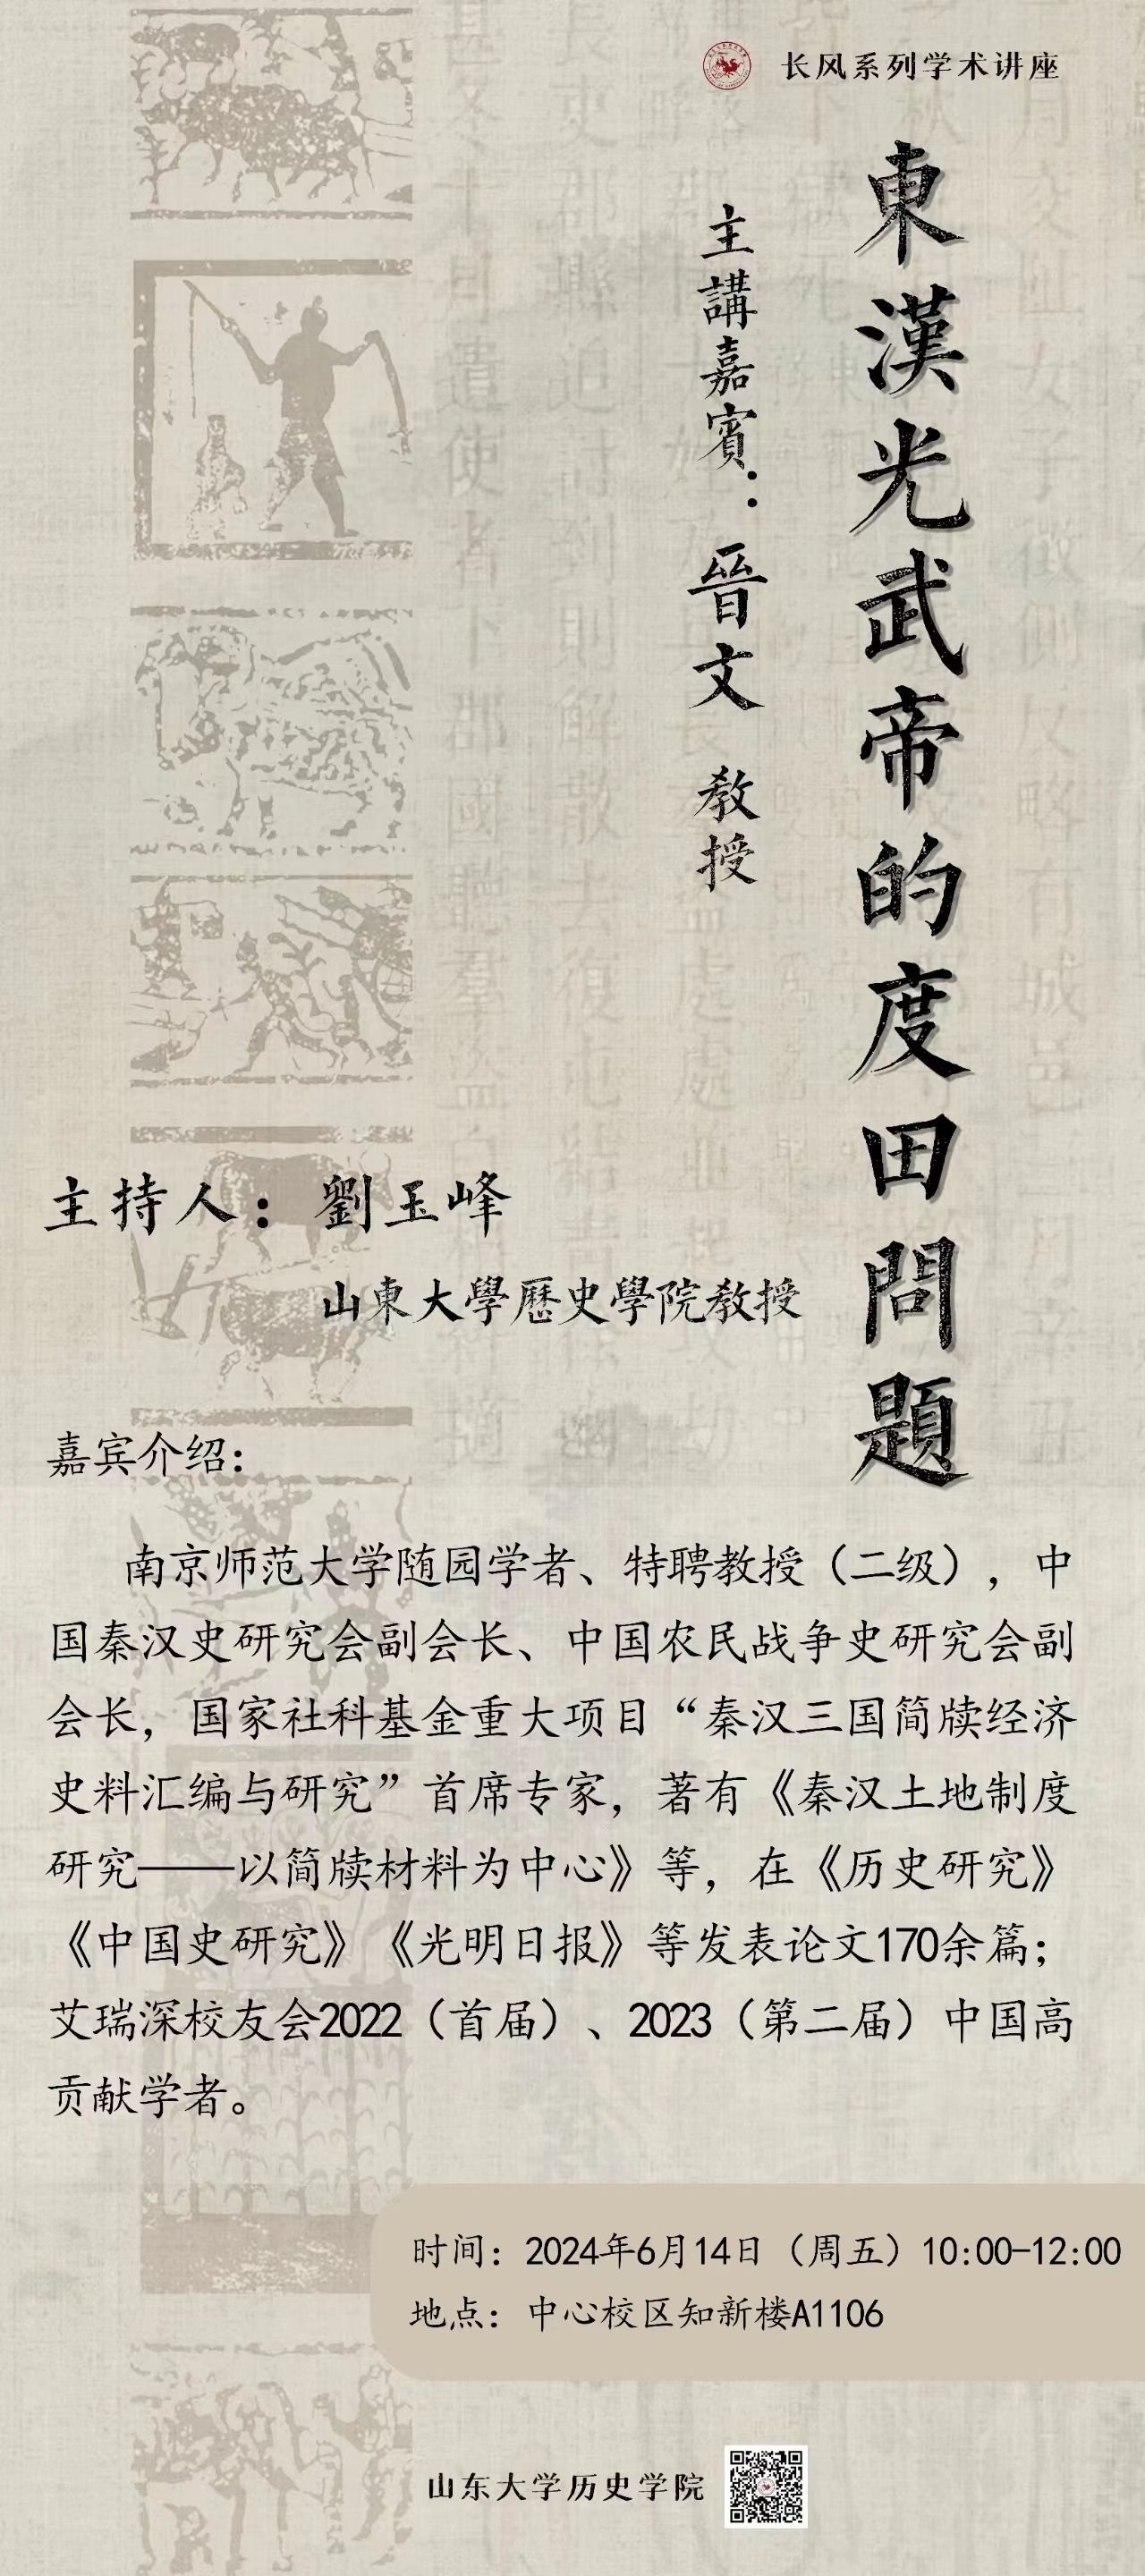 长风系列学术讲座
東漢光武帝的度田問題
主講嘉賓：晉文 教授
主持人：劉玉峰
山東大學歷史學院教授
嘉宾介绍：
南京师范大学随园学者、特聘教授（二级），中
国秦汉史研究会副会长、中国农民战争史研究会副
会长，国家社科基金重大项目“秦汉三国简牍经济
史料汇编与研究”首席专家，著有《秦汉土地制度
研究——以简牍材料为中心》等，在《历史研究》
《中国史研究》《光明日报》等发表论文170余篇；
艾瑞深校友会2022（首届）、2023（第二届）中国高
贡献学者。
时间：2024年6月14日（周五）10:00-12:00
地点：中心校区知新楼A1106
山东大学历史学院